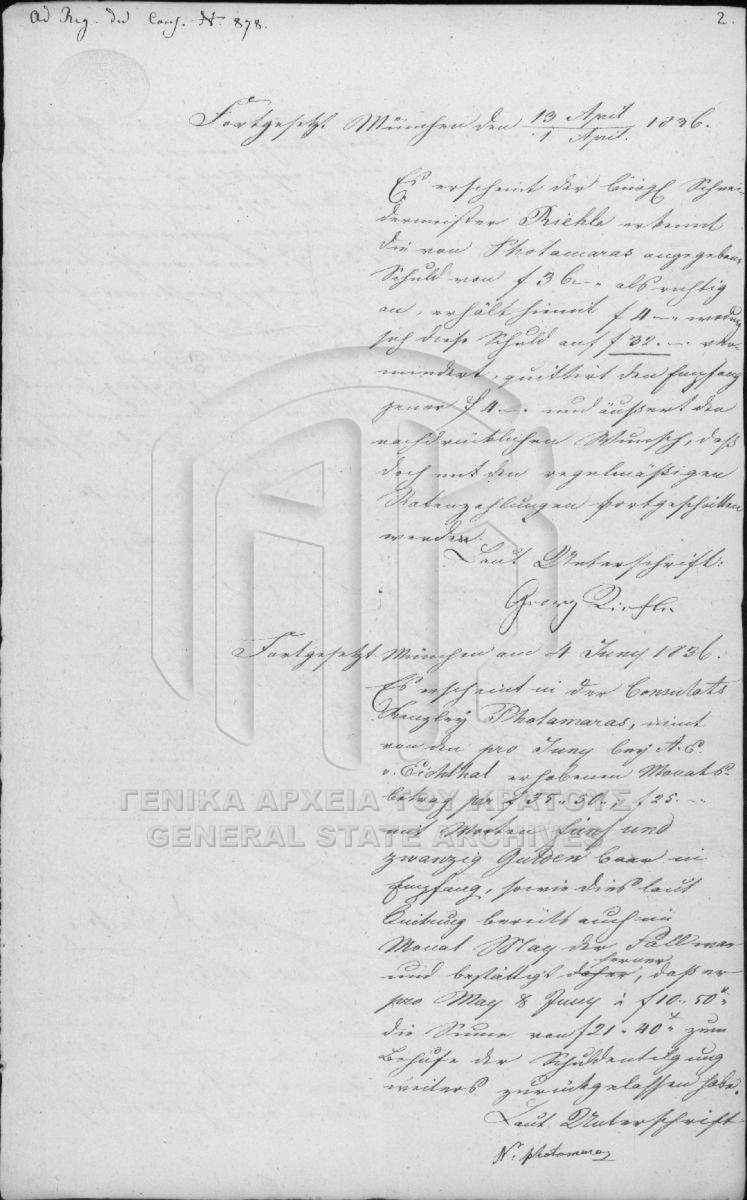 Ad Reg. du Cons. N. 878.
2.
Fortgesetzt München den 13 April / 1 April. 1836.
Es erscheint der bürgl Schnei-
dermeister Riehle erkennt
die von Photamaras angegebene
Schuld von f 36 – " als richtig
an, erhält hiemit f 4 – " wodurch
sich diese Schuld auf f 32. – . ver-
mindert, quittirt den Empfang
jener f 4. – . und äußert den
nachdrücklichen Wunsch, daß
doch mit den regelmäßigen
Ratenzahlungen fortgeschritten
werden.
Laut Unterschrift:
Georg Riehle
Fortgesetzt München am 4 Juny 1836.
Es erscheint in der Consulats
Kanzley Photamaras, nimt
von den pro Juny bey A. E.
v. Eichthal erhobenen Monats-
betrag per f 35 . 50. , f 25. –
mit Worten fünf und
zwanzig Gulden baar in
Empfang, sowie dies laut
Quittung bereits auch im
Monat May der Fall war
und bestättigt daher ferner, daß er
pro May & Juny à f 10. 50 x
die Sume von f 21 . 40 x zum
Behufe der Schuldentilgung
weiters zurückgelassen habe.
Laut Unterschrift
N. photamaras
ΓΕΝΙΚΑ ΑΡΧΕΙΑ ΤΟΥ ΚΡΑΤΟΥΣ
GENERAL STATE ARCHIVES